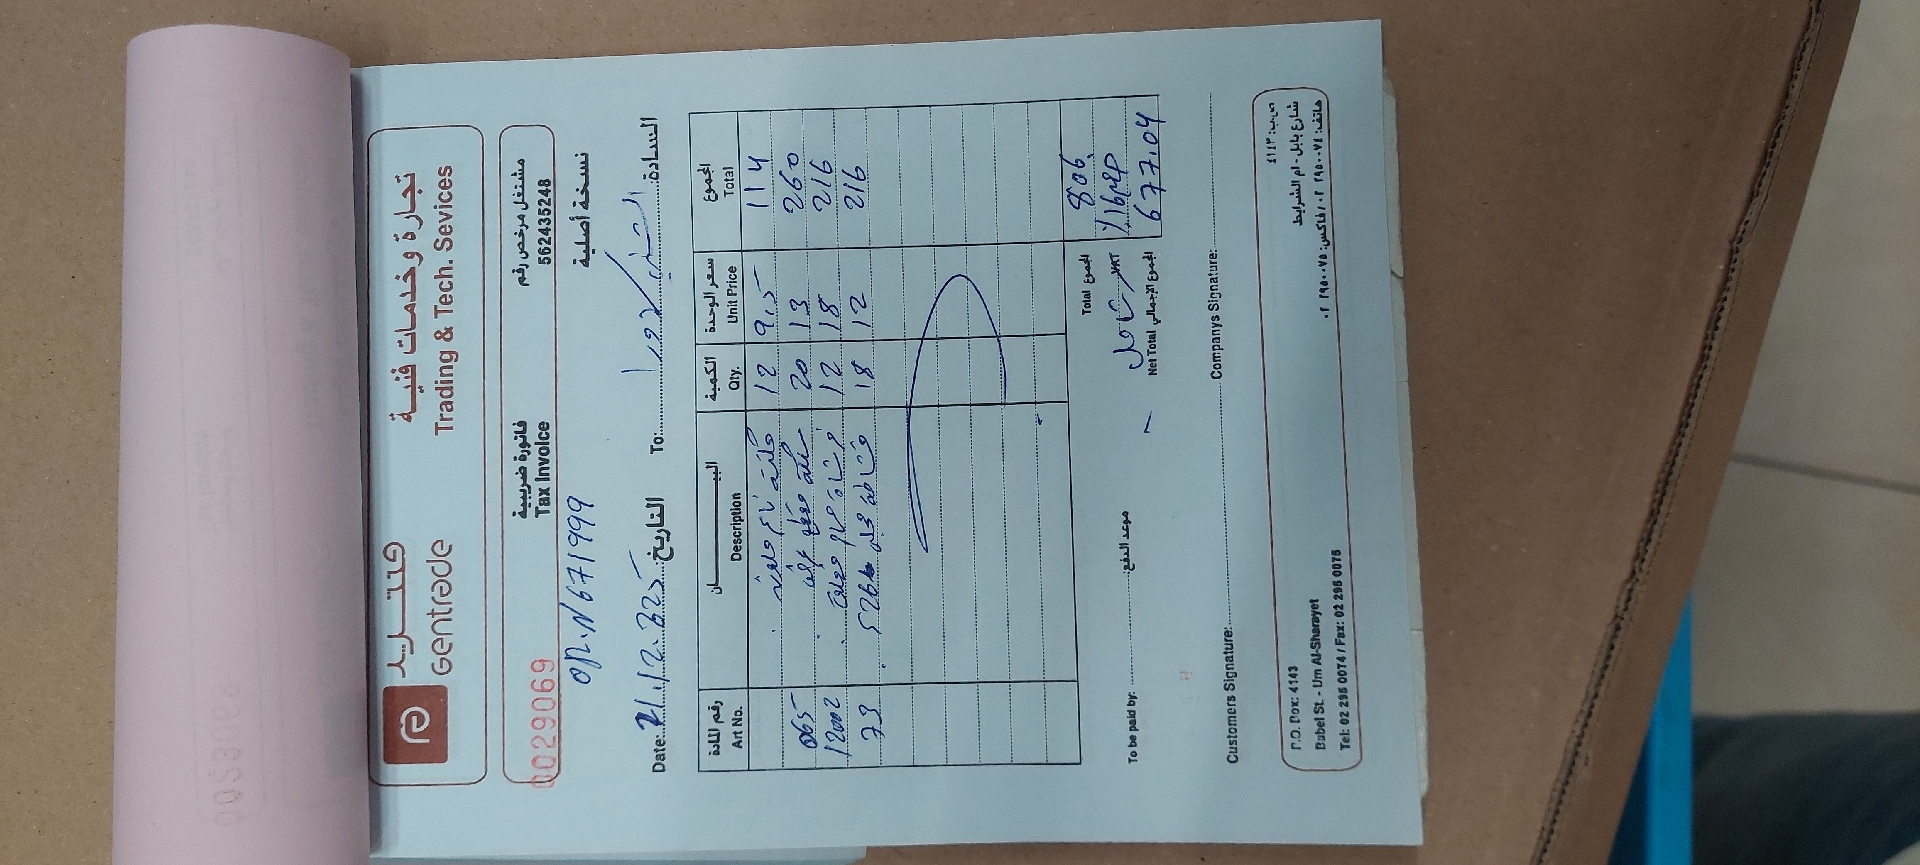 جنتريد
Gentrade
تجارة وخدمات فنية
Trading & Tech. Sevices
0029069
فاتورة ضريبية
Tax Invoice
مشتغل مرخص رقم
562435248
نسخة أصلية
OR.N/671999
Date: 21.12.2025 التاريخ: To: السادة:
رقم المادة البيـــــان الكمية سعر الوحدة المجموع
Art No. Description Qty. Unit Price Total
12 9.5 114
065 20 13 260
12002 12 18 216
73 18 12 216
Total المجموع 806
VAT شامل 16%
Net Total المجموع الإجمالي 677.04
To be paid by: موعد الدفع:
Customers Signature: Companys Signature:
P.O. Box: 4143
Babel St. - Um Al-Sharayet
Tel: 02 295 0074 / Fax: 02 295 0075
ص.ب: ٤١٤٣
شارع بابل - ام الشرايط
هاتف: ٠٢ ٢٩٥٠٠٧٤ / فاكس: ٠٢ ٢٩٥٠٠٧٥